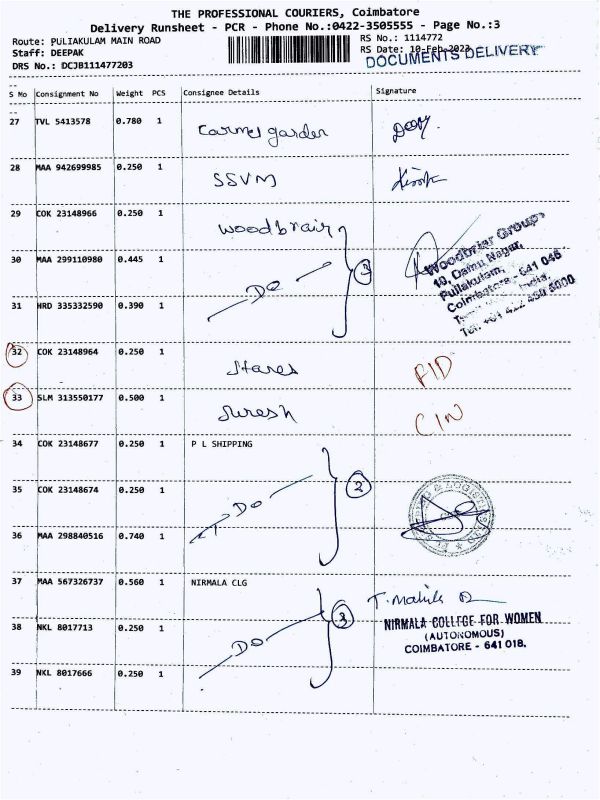 THE PROFESSIONAL COURIERS, Coimbatore
Delivery Runsheet - PCR - Phone No.:0422-3505555 - Page No.:3
Route: PULIAKULAM MAIN ROAD
Staff: DEEPAK
DRS No.: DCJB111477203
RS No.: 1114772
RS Date: 10-Feb-2023
DOCUMENTS DELIVERY
S Mo Consignment No Weight PCS Consignee Details Signature
27 TVL 5413578 0.780 1 Carmel garden
28 MAA 942699985 0.250 1 SSVM
29 COK 23148966 0.250 1 Woodbrair
30 MAA 299110980 0.445 1 Do 3
31 HRD 335332590 0.390 1
Woodbrier Group
10, Damu Nagar,
Puliakulam,
Coimbatore - 641 045
India.
32 COK 23148964 0.250 1 Stares FID
33 SLM 313550177 0.500 1 Suresh CIN
34 COK 23148677 0.250 1 P L SHIPPING
35 COK 23148674 0.250 1 Do 2
36 MAA 298840516 0.740 1
37 MAA 567326737 0.560 1 NIRMALA CLG
38 NKL 8017713 0.250 1 Do 3
NIRMALA COLLEGE FOR WOMEN
(AUTONOMOUS)
COIMBATORE - 641 018.
39 NKL 8017666 0.250 1